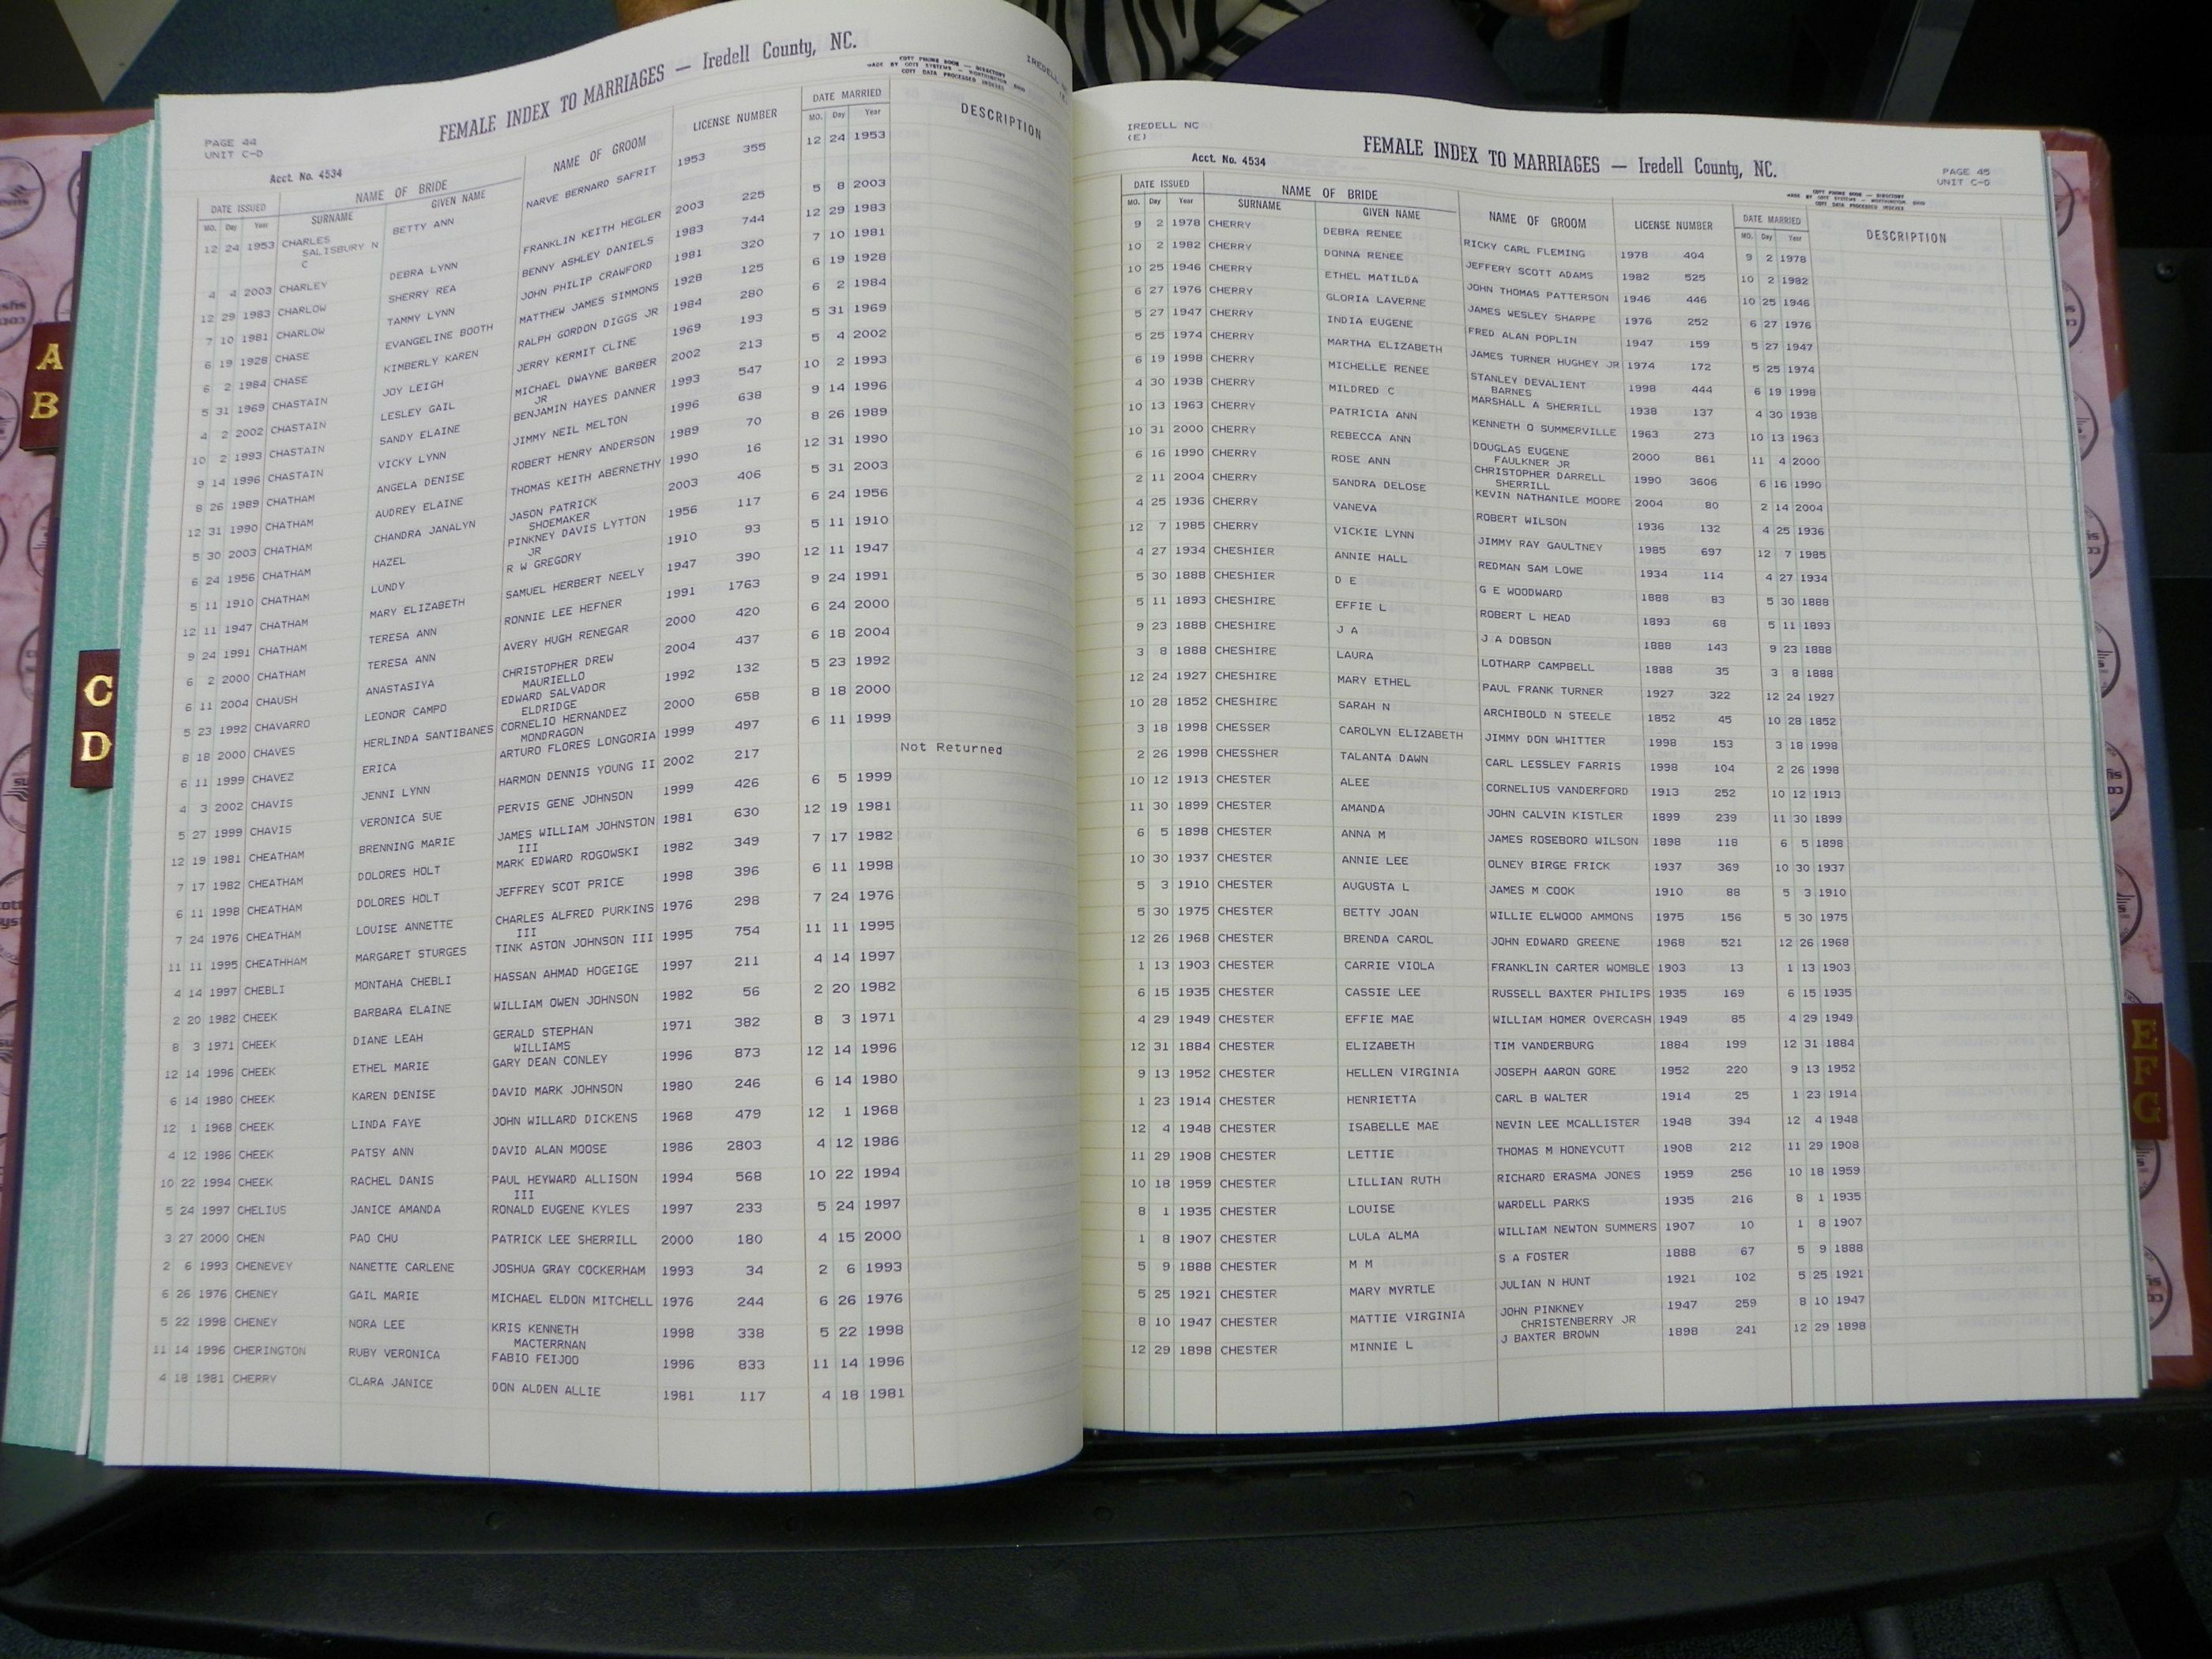 FEMALE INDEX TO MARRIAGES — Iredell County, NC.
COTT PHONE BOOK — DIRECTORY
MADE BY COTT SYSTEMS — WORTHINGTON, OHIO
COTT DATA PROCESSED INDEXES
IREDELL
PAGE 44
UNIT C-D
Acct. No. 4534
DATE ISSUED NAME OF BRIDE NAME OF GROOM LICENSE NUMBER DATE MARRIED DESCRIPTION
MO. Day Year SURNAME GIVEN NAME MO. Day Year
12 24 1953 CHARLES BETTY ANN NARVE BERNARD SAFRIT 1953 355 12 24 1953
SALISBURY N
C
4 4 2003 CHARLEY DEBRA LYNN FRANKLIN KEITH HEGLER 2003 225 5 8 2003
12 29 1983 CHARLOW SHERRY REA BENNY ASHLEY DANIELS 1983 744 12 29 1983
7 10 1981 CHARLOW TAMMY LYNN JOHN PHILIP CRAWFORD 1981 320 7 10 1981
6 19 1928 CHASE EVANGELINE BOOTH MATTHEW JAMES SIMMONS 1928 125 6 19 1928
6 2 1984 CHASE KIMBERLY KAREN RALPH GORDON DIGGS JR 1984 280 6 2 1984
5 31 1969 CHASTAIN JOY LEIGH JERRY KERMIT CLINE 1969 193 5 31 1969
4 2 2002 CHASTAIN LESLEY GAIL MICHAEL DWAYNE BARBER 2002 213 5 4 2002
JR
10 2 1993 CHASTAIN SANDY ELAINE BENJAMIN HAYES DANNER 1993 547 10 2 1993
9 14 1996 CHASTAIN VICKY LYNN JIMMY NEIL MELTON 1996 638 9 14 1996
8 26 1989 CHATHAM ANGELA DENISE ROBERT HENRY ANDERSON 1989 70 8 26 1989
12 31 1990 CHATHAM AUDREY ELAINE THOMAS KEITH ABERNETHY 1990 16 12 31 1990
5 30 2003 CHATHAM CHANDRA JANALYN JASON PATRICK 2003 406 5 31 2003
SHOEMAKER
6 24 1956 CHATHAM HAZEL PINKNEY DAVIS LYTTON 1956 117 6 24 1956
JR
5 11 1910 CHATHAM LUNDY R W GREGORY 1910 93 5 11 1910
12 11 1947 CHATHAM MARY ELIZABETH SAMUEL HERBERT NEELY 1947 390 12 11 1947
9 24 1991 CHATHAM TERESA ANN RONNIE LEE HEFNER 1991 1763 9 24 1991
6 2 2000 CHATHAM TERESA ANN AVERY HUGH RENEGAR 2000 420 6 24 2000
6 11 2004 CHAUSH ANASTASIYA CHRISTOPHER DREW 2004 437 6 18 2004
MAURIELLO
5 23 1992 CHAVARRO LEONOR CAMPO EDWARD SALVADOR 1992 132 5 23 1992
ELDRIDGE
8 18 2000 CHAVES HERLINDA SANTIBANES CORNELIO HERNANDEZ 2000 658 8 18 2000
MONDRAGON
6 11 1999 CHAVEZ ERICA ARTURO FLORES LONGORIA 1999 497 6 11 1999
4 3 2002 CHAVIS JENNI LYNN HARMON DENNIS YOUNG II 2002 217 Not Returned
5 27 1999 CHAVIS VERONICA SUE PERVIS GENE JOHNSON 1999 426 6 5 1999
12 19 1981 CHEATHAM BRENNING MARIE JAMES WILLIAM JOHNSTON 1981 630 12 19 1981
III
7 17 1982 CHEATHAM DOLORES HOLT MARK EDWARD ROGOWSKI 1982 349 7 17 1982
6 11 1998 CHEATHAM DOLORES HOLT JEFFREY SCOT PRICE 1998 396 6 11 1998
7 24 1976 CHEATHAM LOUISE ANNETTE CHARLES ALFRED PURKINS 1976 298 7 24 1976
III
11 11 1995 CHEATHHAM MARGARET STURGES TINK ASTON JOHNSON III 1995 754 11 11 1995
4 14 1997 CHEBLI MONTAHA CHEBLI HASSAN AHMAD HOGEIGE 1997 211 4 14 1997
2 20 1982 CHEEK BARBARA ELAINE WILLIAM OWEN JOHNSON 1982 56 2 20 1982
8 3 1971 CHEEK DIANE LEAH GERALD STEPHAN 1971 382 8 3 1971
WILLIAMS
12 14 1996 CHEEK ETHEL MARIE GARY DEAN CONLEY 1996 873 12 14 1996
6 14 1980 CHEEK KAREN DENISE DAVID MARK JOHNSON 1980 246 6 14 1980
12 1 1968 CHEEK LINDA FAYE JOHN WILLARD DICKENS 1968 479 12 1 1968
4 12 1986 CHEEK PATSY ANN DAVID ALAN MOOSE 1986 2803 4 12 1986
10 22 1994 CHEEK RACHEL DANIS PAUL HEYWARD ALLISON 1994 568 10 22 1994
III
5 24 1997 CHELIUS JANICE AMANDA RONALD EUGENE KYLES 1997 233 5 24 1997
3 27 2000 CHEN PAO CHU PATRICK LEE SHERRILL 2000 180 4 15 2000
2 6 1993 CHENEVEY NANETTE CARLENE JOSHUA GRAY COCKERHAM 1993 34 2 6 1993
6 26 1976 CHENEY GAIL MARIE MICHAEL ELDON MITCHELL 1976 244 6 26 1976
5 22 1998 CHENEY NORA LEE KRIS KENNETH 1998 338 5 22 1998
MACTERRNAN
11 14 1996 CHERINGTON RUBY VERONICA FABIO FEIJOO 1996 833 11 14 1996
4 18 1981 CHERRY CLARA JANICE DON ALDEN ALLIE 1981 117 4 18 1981
IREDELL NC
(E)
Acct. No. 4534
FEMALE INDEX TO MARRIAGES — Iredell County, NC.
PAGE 45
UNIT C-D
COTT PHONE BOOK — DIRECTORY
MADE BY COTT SYSTEMS — WORTHINGTON, OHIO
COTT DATA PROCESSED INDEXES
DATE ISSUED NAME OF BRIDE NAME OF GROOM LICENSE NUMBER DATE MARRIED DESCRIPTION
MO. Day Year SURNAME GIVEN NAME MO. Day Year
9 2 1978 CHERRY DEBRA RENEE RICKY CARL FLEMING 1978 404 9 2 1978
10 2 1982 CHERRY DONNA RENEE JEFFERY SCOTT ADAMS 1982 525 10 2 1982
10 25 1946 CHERRY ETHEL MATILDA JOHN THOMAS PATTERSON 1946 446 10 25 1946
6 27 1976 CHERRY GLORIA LAVERNE JAMES WESLEY SHARPE 1976 252 6 27 1976
5 27 1947 CHERRY INDIA EUGENE FRED ALAN POPLIN 1947 159 5 27 1947
5 25 1974 CHERRY MARTHA ELIZABETH JAMES TURNER HUGHEY JR 1974 172 5 25 1974
6 19 1998 CHERRY MICHELLE RENEE STANLEY DEVALIENT 1998 444 6 19 1998
BARNES
4 30 1938 CHERRY MILDRED C MARSHALL A SHERRILL 1938 137 4 30 1938
10 13 1963 CHERRY PATRICIA ANN KENNETH O SUMMERVILLE 1963 273 10 13 1963
10 31 2000 CHERRY REBECCA ANN DOUGLAS EUGENE 2000 861 11 4 2000
FAULKNER JR
6 16 1990 CHERRY ROSE ANN CHRISTOPHER DARRELL 1990 3606 6 16 1990
SHERRILL
2 11 2004 CHERRY SANDRA DELOSE KEVIN NATHANILE MOORE 2004 80 2 14 2004
4 25 1936 CHERRY VANEVA ROBERT WILSON 1936 132 4 25 1936
12 7 1985 CHERRY VICKIE LYNN JIMMY RAY GAULTNEY 1985 697 12 7 1985
4 27 1934 CHESHIER ANNIE HALL REDMAN SAM LOWE 1934 114 4 27 1934
5 30 1888 CHESHIER D E G E WOODWARD 1888 83 5 30 1888
5 11 1893 CHESHIRE EFFIE L ROBERT L HEAD 1893 68 5 11 1893
9 23 1888 CHESHIRE J A J A DOBSON 1888 143 9 23 1888
3 8 1888 CHESHIRE LAURA LOTHARP CAMPBELL 1888 35 3 8 1888
12 24 1927 CHESHIRE MARY ETHEL PAUL FRANK TURNER 1927 322 12 24 1927
10 28 1852 CHESHIRE SARAH N ARCHIBOLD N STEELE 1852 45 10 28 1852
3 18 1998 CHESSER CAROLYN ELIZABETH JIMMY DON WHITTER 1998 153 3 18 1998
2 26 1998 CHESSHER TALANTA DAWN CARL LESSLEY FARRIS 1998 104 2 26 1998
10 12 1913 CHESTER ALEE CORNELIUS VANDERFORD 1913 252 10 12 1913
11 30 1899 CHESTER AMANDA JOHN CALVIN KISTLER 1899 239 11 30 1899
6 5 1898 CHESTER ANNA M JAMES ROSEBORO WILSON 1898 118 6 5 1898
10 30 1937 CHESTER ANNIE LEE OLNEY BIRGE FRICK 1937 369 10 30 1937
5 3 1910 CHESTER AUGUSTA L JAMES M COOK 1910 88 5 3 1910
5 30 1975 CHESTER BETTY JOAN WILLIE ELWOOD AMMONS 1975 156 5 30 1975
12 26 1968 CHESTER BRENDA CAROL JOHN EDWARD GREENE 1968 521 12 26 1968
1 13 1903 CHESTER CARRIE VIOLA FRANKLIN CARTER WOMBLE 1903 13 1 13 1903
6 15 1935 CHESTER CASSIE LEE RUSSELL BAXTER PHILIPS 1935 169 6 15 1935
4 29 1949 CHESTER EFFIE MAE WILLIAM HOMER OVERCASH 1949 85 4 29 1949
12 31 1884 CHESTER ELIZABETH TIM VANDERBURG 1884 199 12 31 1884
9 13 1952 CHESTER HELLEN VIRGINIA JOSEPH AARON GORE 1952 220 9 13 1952
1 23 1914 CHESTER HENRIETTA CARL B WALTER 1914 25 1 23 1914
12 4 1948 CHESTER ISABELLE MAE NEVIN LEE MCALLISTER 1948 394 12 4 1948
11 29 1908 CHESTER LETTIE THOMAS M HONEYCUTT 1908 212 11 29 1908
10 18 1959 CHESTER LILLIAN RUTH RICHARD ERASMA JONES 1959 256 10 18 1959
8 1 1935 CHESTER LOUISE WARDELL PARKS 1935 216 8 1 1935
1 8 1907 CHESTER LULA ALMA WILLIAM NEWTON SUMMERS 1907 10 1 8 1907
5 9 1888 CHESTER M M S A FOSTER 1888 67 5 9 1888
5 25 1921 CHESTER MARY MYRTLE JULIAN N HUNT 1921 102 5 25 1921
8 10 1947 CHESTER MATTIE VIRGINIA JOHN PINKNEY 1947 259 8 10 1947
CHRISTENBERRY JR
12 29 1898 CHESTER MINNIE L J BAXTER BROWN 1898 241 12 29 1898
A
B
C
D
E
F
G